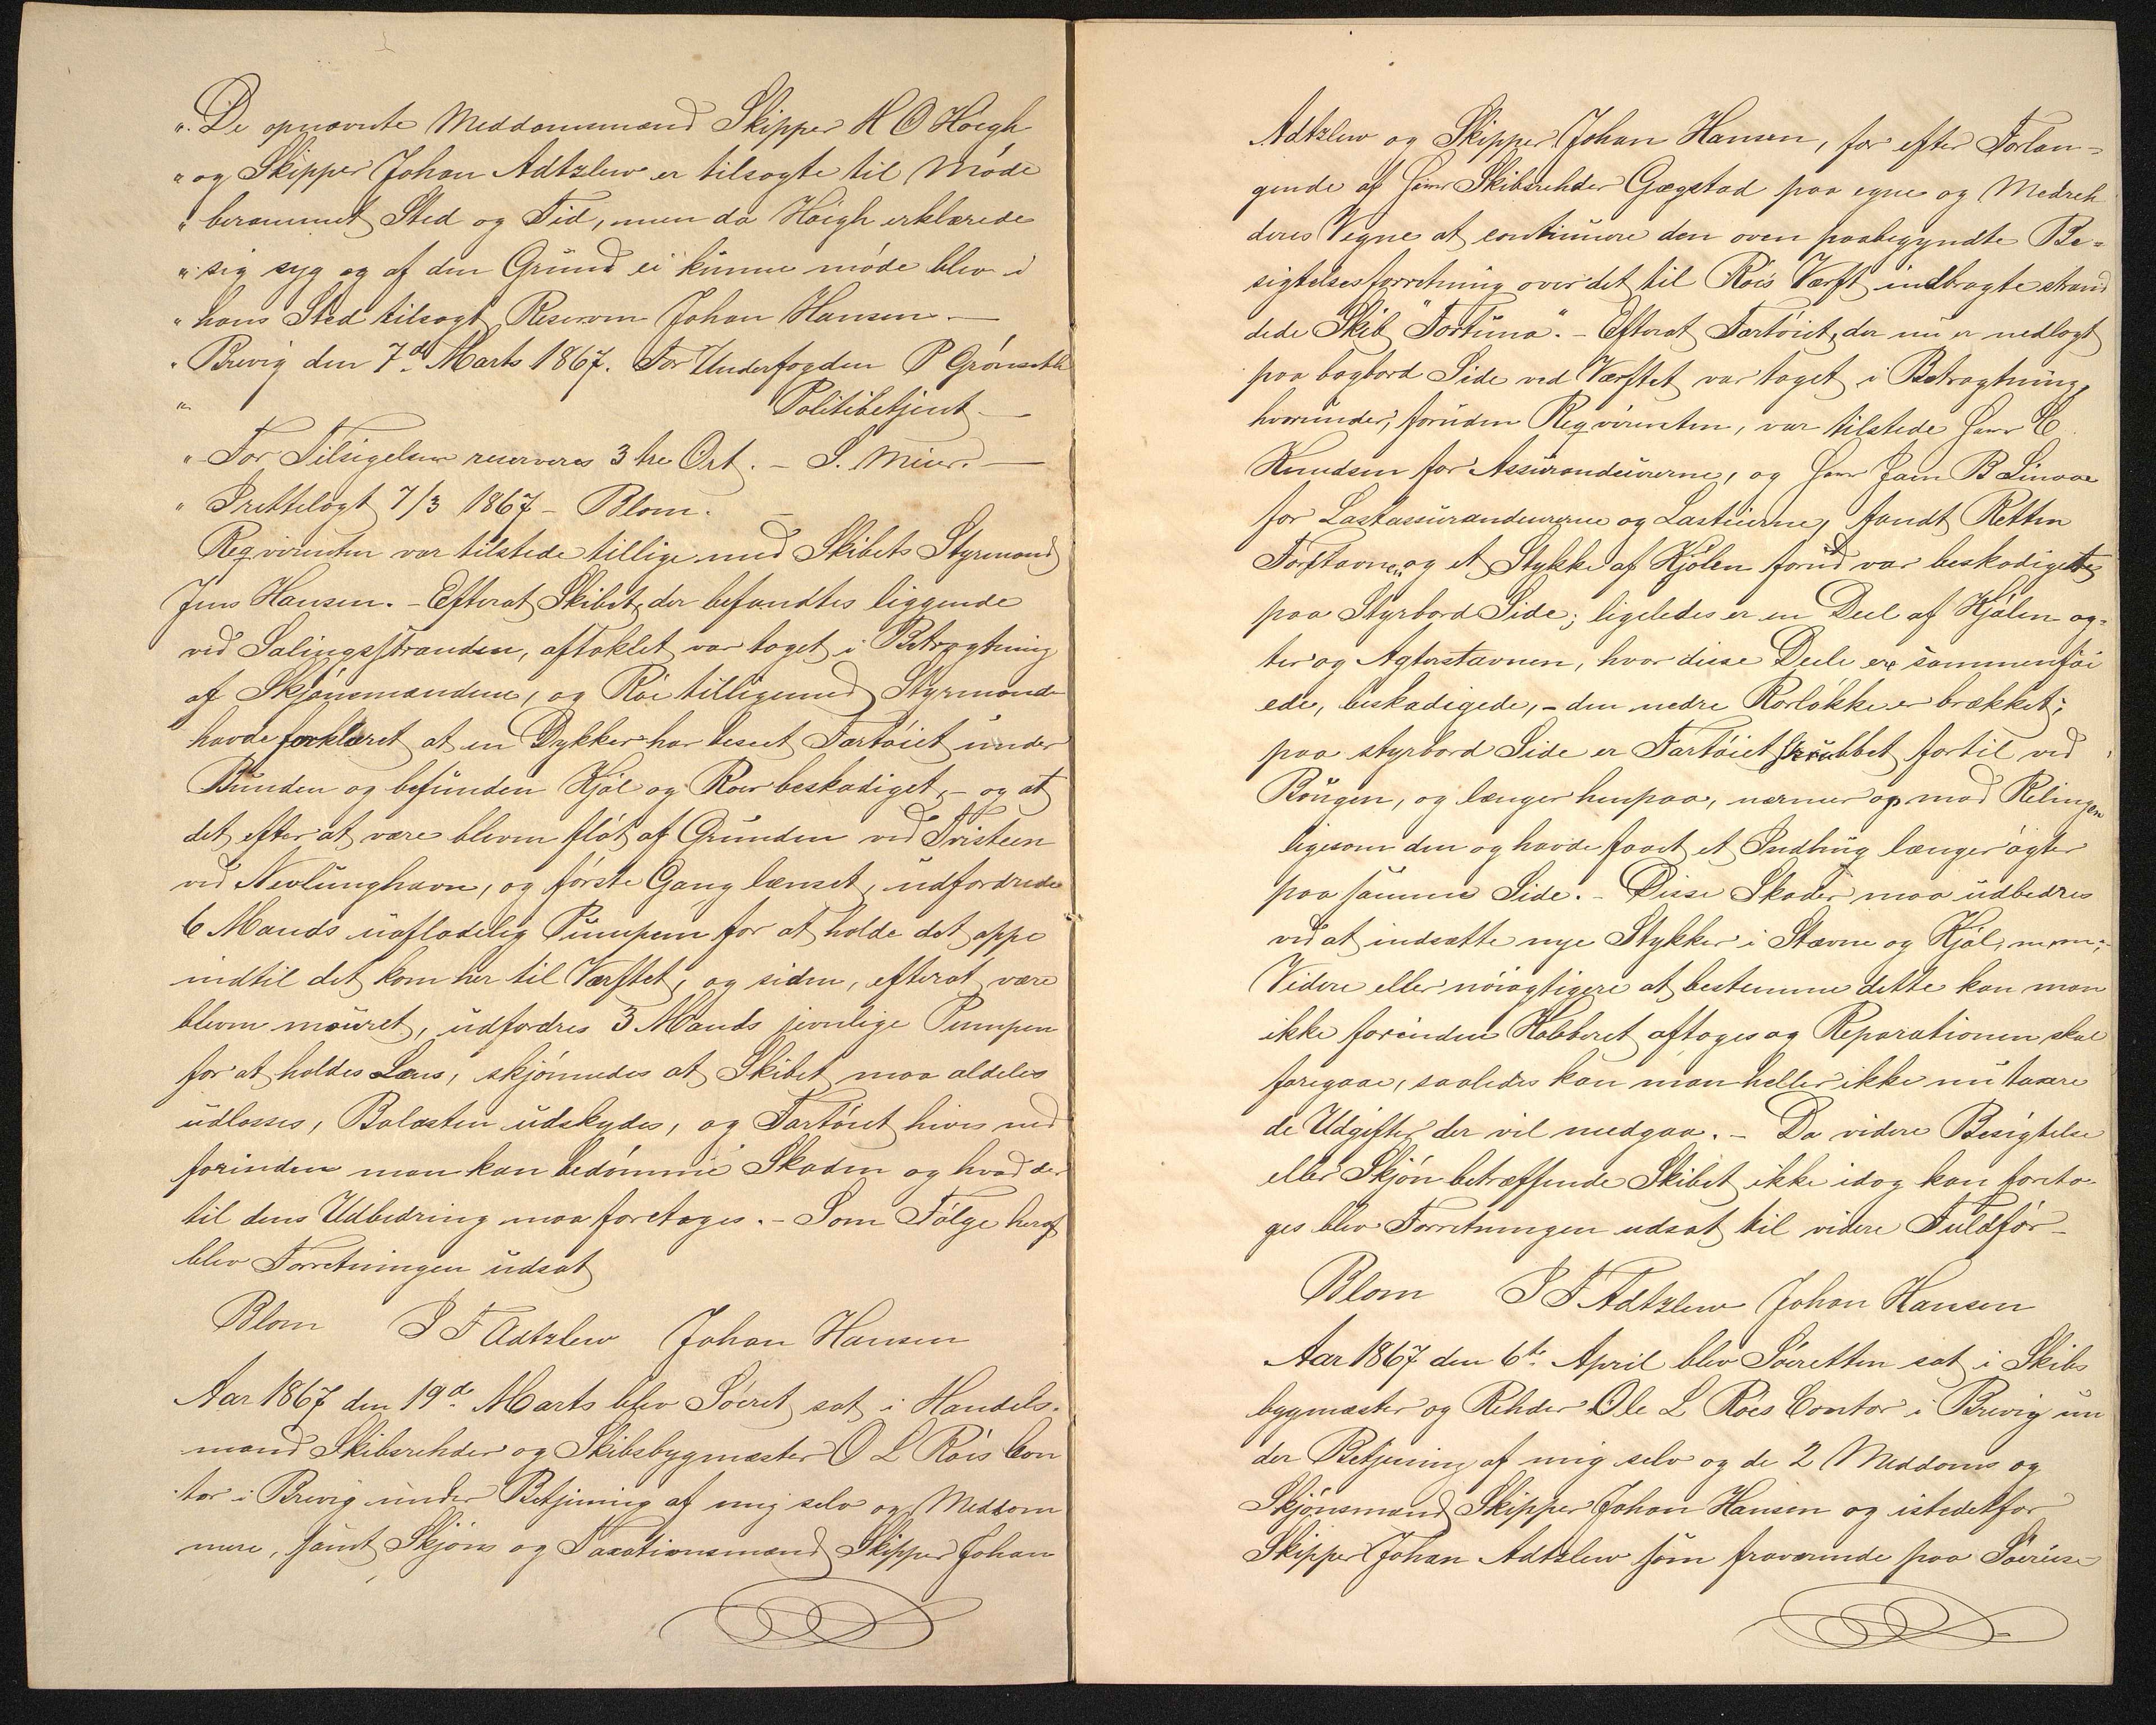 ". De opnævnte Meddomsmænd Skipper H O Høegh
" og Skipper Johan Adtzlew er tilsagte til Møde
" berammet Sted og Tid, men da Høigh erklærede
" sig syg og af den Grund ei kunne møde blev i
" hans Sted tilsagt Reserven Johan Hansen. —
" Brevig den 7d Marts 1867. For Underfogden P Grønseth
" Politibetjent —
" For Tilsigelsen reserveres 3 tre Ort. – S. Mier. —
" Irettelagt 7/3 1867 – Blom. –
Reqvirenten var tilstede tillige med Skibets Styrmand
Jens Hansen. – Efterat Skibet, der befandtes liggende
ved Salingsstranden, aftaklet var taget i Betragtning
af Skjønsmændene, og Røe tilligemed Styrmande
havde forklaret at en Dykker har beseet Fartøiet under
Bunden og befunden Kjøl og Roer beskadiget, – og at
det efter at være bleven fløt af Grunden ved Tvisteen
ved Nevlunghavn, og første Gang lænset, udfordrede
6 Mands uafladelig Pumpen for at holde det oppe
indtil det kom her til Værftet, og siden, efterat være
bleven mouret, udfordres 3 Mands jevnlige Pumpen
for at holdes Læns, skjønnedes at Skibet maa aldeles
udlosses, Balasten udskydes, og Fartøiet hives ned
forinden man kan bedømme Skaden og hvad der
til dens Udbedring maa foretages. – Som Følge heraf
blev Forretningen udsat
Blom J F Adtzlew Johan Hansen
Aar 1867 den 19d Marts blev Søeret sat i Handels-
mand Skibsrehder og Skibsbygmæster O L Røis Con
tor i Brevig under Betjening af mig selv og Meddom
mere, samt Skjøns og Taxationsmænd Skipper Johan
Adtzlew og Skipper Johan Hansen, for efter Forlan-
gende af Herr Skibsrehder Gægstad paa egne og Medreh
deres Vegne at continuere den oven paabegyndte Be-
sigtelsesforretning over det til Røis Værft indbragte strand
dede Skib "Fortuna". – Efterat Fartøiet, der nu er nedlagt
paa bagbord Side ved Værftet var taget i Betragtning,
hvorunder, foruden Reqvirenten, var tilstede Herr C
Knudsen for Assurandeurerne, og Herr Jacn B Linaae
for Lastassurandeurerne og Lasteierne, fandt Retten
Forstavnen og et Stykke af Kjølen forud var beskadigettes
paa Styrbord Side; ligeledes er en Deel af Kjølen ag-
ter og Agterstavnen, hvor disse Deele ere sammenføi
ede, beskadigede, – den nedre Rorløkke er brækket;
paa styrbord Side er Fartøiet skrubbet fortil ved
Bougen, og længer henpaa, nærmer op mod Relingen
ligesom den og havde faaet et Indhug længer agter
paa samme Side. – Disse Skader maa udbedres
ved at indsætte nye Stykker i Stævne og Kjøl, m.m.;
Videre eller nøiagtigere at bestemme dette kan man
ikke forinden Kobberet aftages og Reparationen skal
foregaae, saaledes kan man heller ikke nu taxere
de Udgifter der vil medgaa. – Da videre Besigtelse
eller Skjøn betræffende Skibet ikke idag kan foreta-
ges blev Forretningen udsat til videre Fuldfør –
Blom J F Adtzlew Johan Hansen
Aar 1867 den 6te April blev Søeretten sat i Skibs
bygmæster og Rehder Ole L Røis Contor i Brevig un
der Betjening af mig selv og de 2 Meddoms og
Skjønsmænd Skipper Johan Hansen og istedetfor
Skipper Johan Adtzlew som fraværende paa Søreise